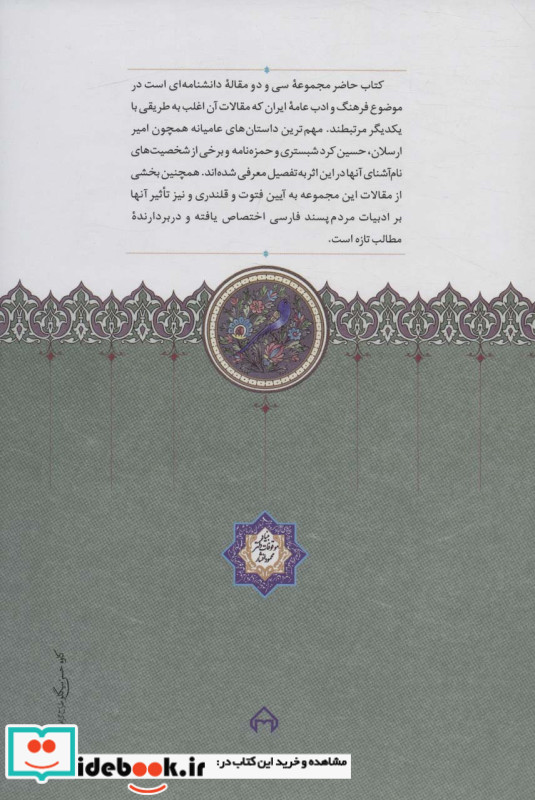 کتاب حاضر مجموعهٔ سی و دو مقالهٔ دانشنامه‌ای است در
موضوع فرهنگ و ادب عامهٔ ایران که مقالات آن اغلب به طریقی با
یکدیگر مرتبطند. مهم‌ترین داستان‌های عامیانه همچون امیر
ارسلان، حسین کرد شبستری و حمزه‌نامه و برخی از شخصیت‌های
نام‌آشنای آنها در این اثر به تفصیل معرفی شده‌اند. همچنین بخشی
از مقالات این مجموعه به آیین فتوت و قلندری و نیز تأثیر آنها
بر ادبیات مردم‌پسند فارسی اختصاص یافته و دربردارندهٔ
مطالب تازه است.
بنیاد
موقوفات دکتر
محمود افشار
مشاهده و خرید این کتاب در:
idebook.ir